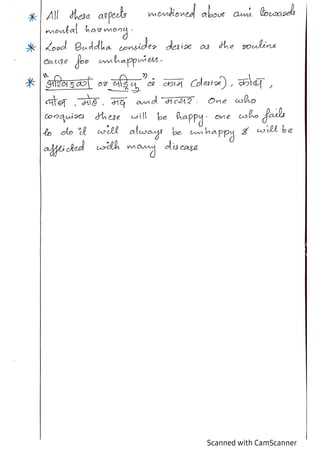 * All these aspects mentioned above aim towards
mental harmony.
* Lord Buddha consider desire as the routine
cause for unhappiness.
* or षड्रिपु काम (desire), क्रोध,
लोभ, मोह, मद and मत्सर. One who
conquires these will be happy. one who fails
to do it will always be unhappy & will be
afflicted with many disease
Scanned with CamScanner